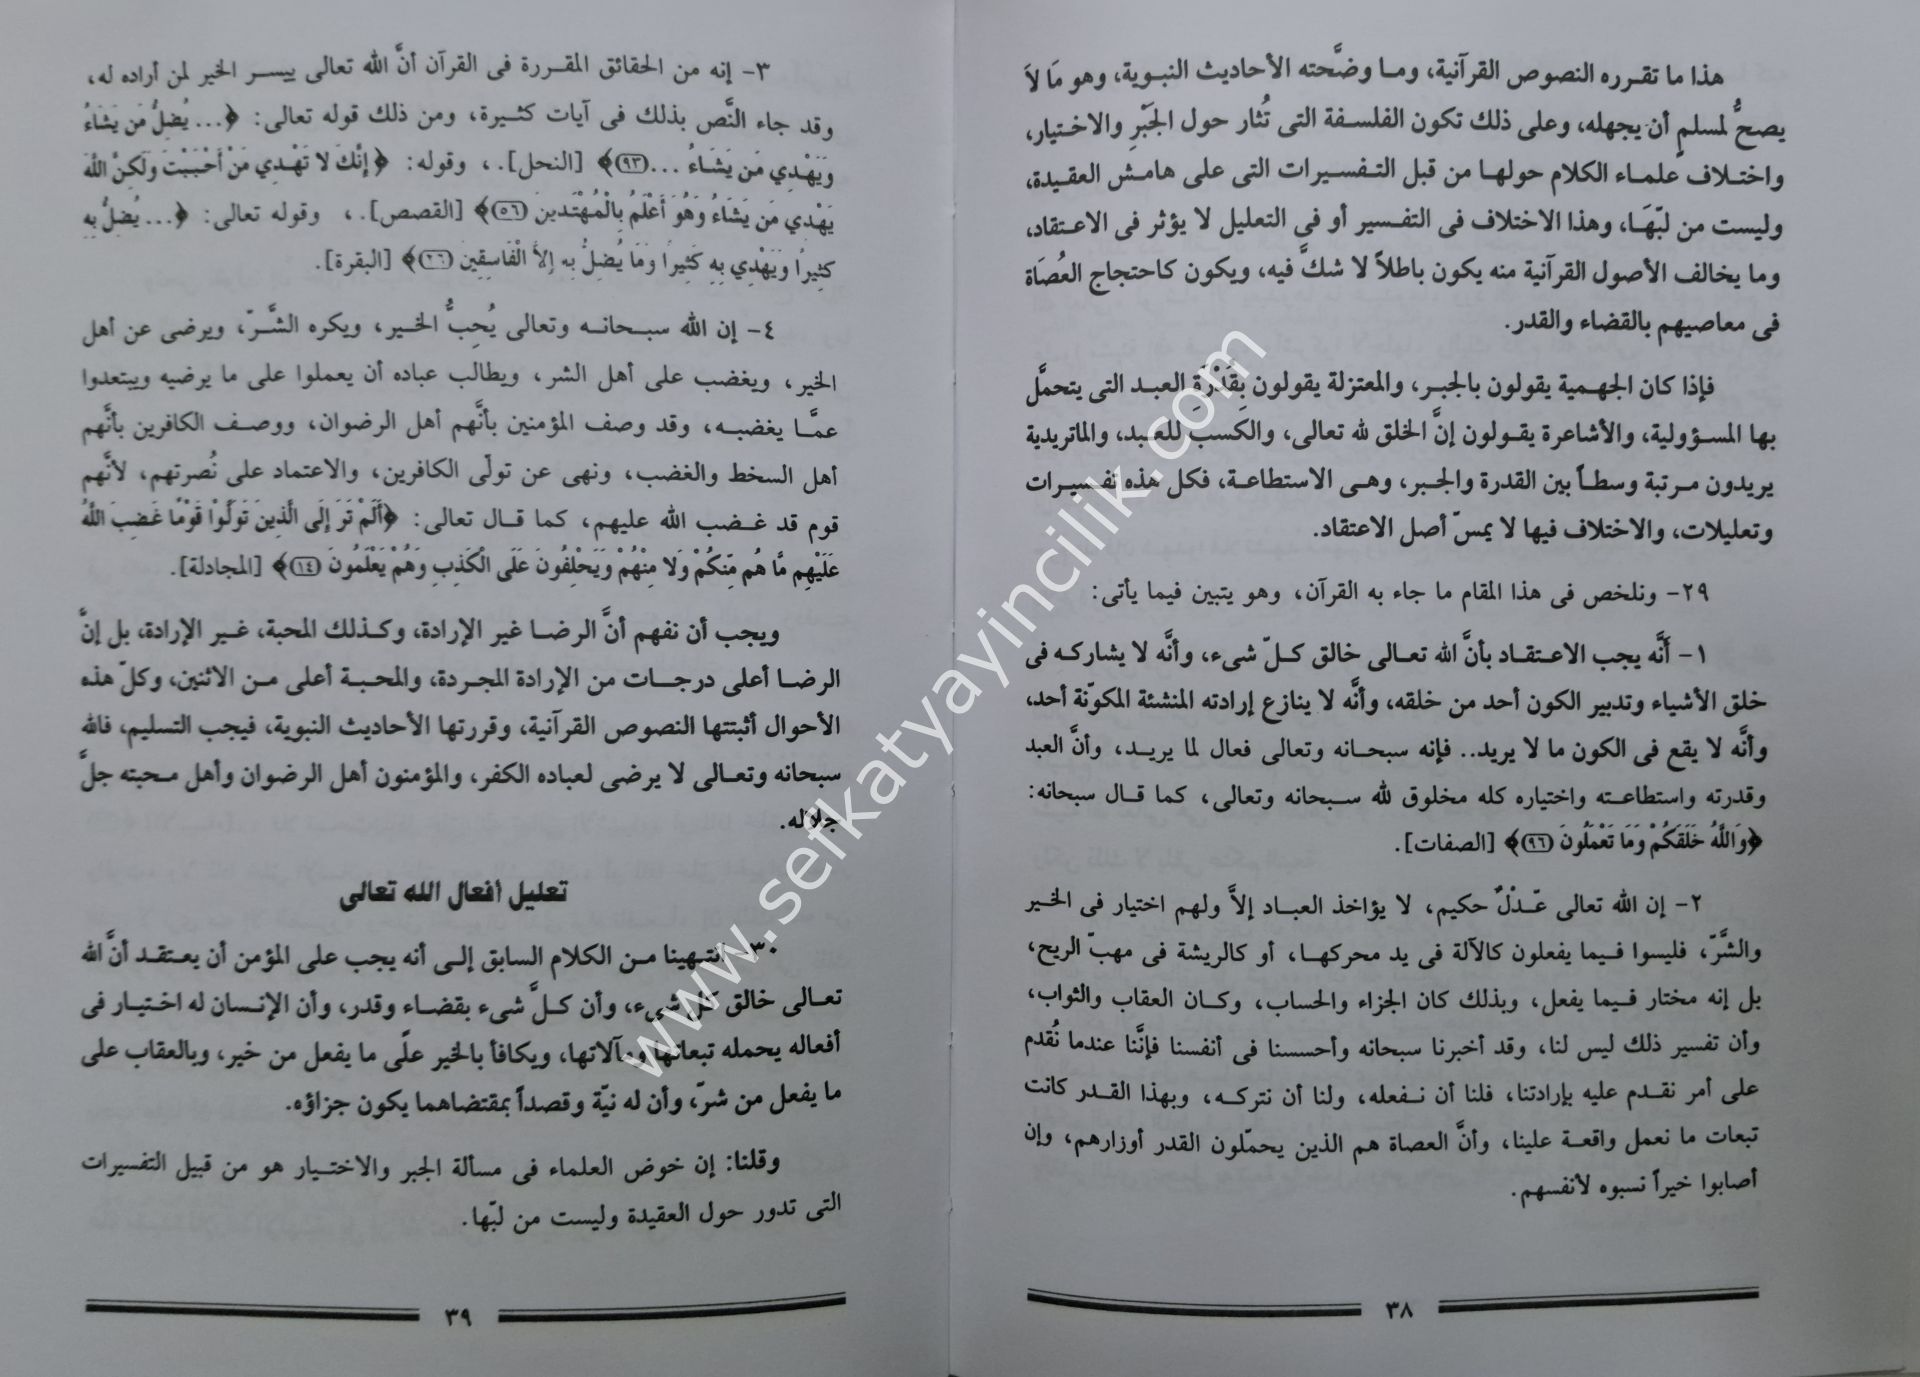 هذا ما تقرره النصوص القرآنية، وما وضَّحته الأحاديث النبوية، وهو مَا لاَ
يصحُّ لمسلمٍ أن يجهله، وعلى ذلك تكون الفلسفة التى تُثار حول الجَبْرِ والاختيار،
واختلاف علماء الكلام حولها من قبل التفسيرات التى على هامش العقيدة،
وليست من لبّهَا، وهذا الاختلاف فى التفسير أو فى التعليل لا يؤثر فى الاعتقاد،
وما يخالف الأصول القرآنية منه يكون باطلاً لا شكَّ فيه، ويكون كاحتجاج العُصَاة
فى معاصيهم بالقضاء والقدر.
فإذا كان الجهمية يقولون بالجبر، والمعتزلة يقولون بِقُدْرَةِ العبد التى يتحمَّل
بها المسؤولية، والأشاعرة يقولون إنَّ الخلق لله تعالى، والكَسب للعبد، والماتريدية
يريدون مرتبة وسطاً بين القدرة والجبر، وهى الاستطاعة، فكل هذه تفسيرات
وتعليلات، والاختلاف فيها لا يمسّ أصل الاعتقاد.
٢٩- ونلخص فى هذا المقام ما جاء به القرآن، وهو يتبين فيما يأتى:
١- أنَّه يجب الاعتقاد بأنَّ الله تعالى خالق كلّ شىء، وأنَّه لا يشاركه فى
خلق الأشياء وتدبير الكون أحد من خلقه، وأنَّه لا ينازع إرادته المنشئة المكوّنة أحد،
وأنَّه لا يقع فى الكون ما لا يريد.. فإنه سبحانه وتعالى فعال لما يريد، وأنَّ العبد
وقدرته واستطاعته واختياره كله مخلوق لله سبحانه وتعالى، كما قال سبحانه:
﴿وَاللَّهُ خَلَقَكُمْ وَمَا تَعْمَلُونَ (٩٦)﴾ [الصفات].
٢- إن الله تعالى عَدْلٌ حكيم، لا يؤاخذ العباد إلاَّ ولهم اختيار فى الخير
والشَّرّ، فليسوا فيما يفعلون كالآلة فى يد محركها، أو كالريشة فى مهبّ الريح،
بل إنه مختار فيما يفعل، وبذلك كان الجزاء والحساب، وكان العقاب والثواب،
وأن تفسير ذلك ليس لنا، وقد أخبرنا سبحانه وأحسسنا فى أنفسنا فإنَّنا عندما نُقدم
على أمر نقدم عليه بإرادتنا، فلنا أن نفعله، ولنا أن نتركه، وبهذا القدر كانت
تبعات ما نعمل واقعة علينا، وأنَّ العصاة هم الذين يحمّلون القدر أوزارهم، وإن
أصابوا خيراً نسبوه لأنفسهم.
٣٨
٣- إنه من الحقائق المقررة فى القرآن أنَّ الله تعالى ييسر الخير لمن أراده له،
وقد جاء النَّص بذلك فى آيات كثيرة، ومن ذلك قوله تعالى: ﴿... يُضِلُّ مَن يَشَاءُ
وَيَهْدِي مَن يَشَاءُ ...(٩٣)﴾ [النحل].، وقوله: ﴿إِنَّكَ لا تَهْدِي مَنْ أَحْبَبْتَ وَلَكِنَّ اللَّهَ
يَهْدِي مَن يَشَاءُ وَهُوَ أَعْلَمُ بِالْمُهْتَدِينَ (٥٦)﴾ [القصص].، وقوله تعالى: ﴿... يُضِلُّ بِهِ
كَثِيرًا وَيَهْدِي بِهِ كَثِيرًا وَمَا يُضِلُّ بِهِ إِلاَّ الْفَاسِقِينَ (٢٦)﴾ [البقرة].
٤- إن الله سبحانه وتعالى يُحِبُّ الخير، ويكره الشَّرّ، ويرضى عن أهل
الخير، ويغضب على أهل الشر، ويطالب عباده أن يعملوا على ما يرضيه ويبتعدوا
عمَّا يغضبه، وقد وصف المؤمنين بأنَّهم أهل الرضوان، ووصف الكافرين بأنَّهم
أهل السخط والغضب، ونهى عن تولّى الكافرين، والاعتماد على نُصرتهم، لأنَّهم
قوم قد غضب الله عليهم، كما قال تعالى: ﴿أَلَمْ تَرَ إِلَى الَّذِينَ تَوَلَّوْا قَوْمًا غَضِبَ اللَّهُ
عَلَيْهِم مَّا هُم مِّنكُمْ وَلا مِنْهُمْ وَيَحْلِفُونَ عَلَى الْكَذِبِ وَهُمْ يَعْلَمُونَ (١٤)﴾ [المجادلة].
ويجب أن نفهم أنَّ الرضا غير الإرادة، وكذلك المحبة، غير الإرادة، بل إنَّ
الرضا أعلى درجات من الإرادة المجردة، والمحبة أعلى من الاثنين، وكلّ هذه
الأحوال أثبتتها النصوص القرآنية، وقررتها الأحاديث النبوية، فيجب التسليم، فالله
سبحانه وتعالى لا يرضى لعباده الكفر، والمؤمنون أهل الرضوان وأهل محبته جلَّ
جلاله.
تعليل أفعال الله تعالى
٣٠- انتهينا من الكلام السابق إلى أنه يجب على المؤمن أن يعتقد أنَّ الله
تعالى خالق كل شىء، وأن كلَّ شىء بقضاء وقدر، وأن الإنسان له اختيار فى
أفعاله يحمله تبعاتها ومآلاتها، ويكافأ بالخير علَى ما يفعل من خير، وبالعقاب على
ما يفعل من شرّ، وأن له نيّة وقصداً بمقتضاهما يكون جزاؤه.
وقلنا: إن خوض العلماء فى مسألة الجبر والاختيار هو من قبيل التفسيرات
التى تدور حول العقيدة وليست من لبّها.
٣٩
www.sefkatyayincilik.com